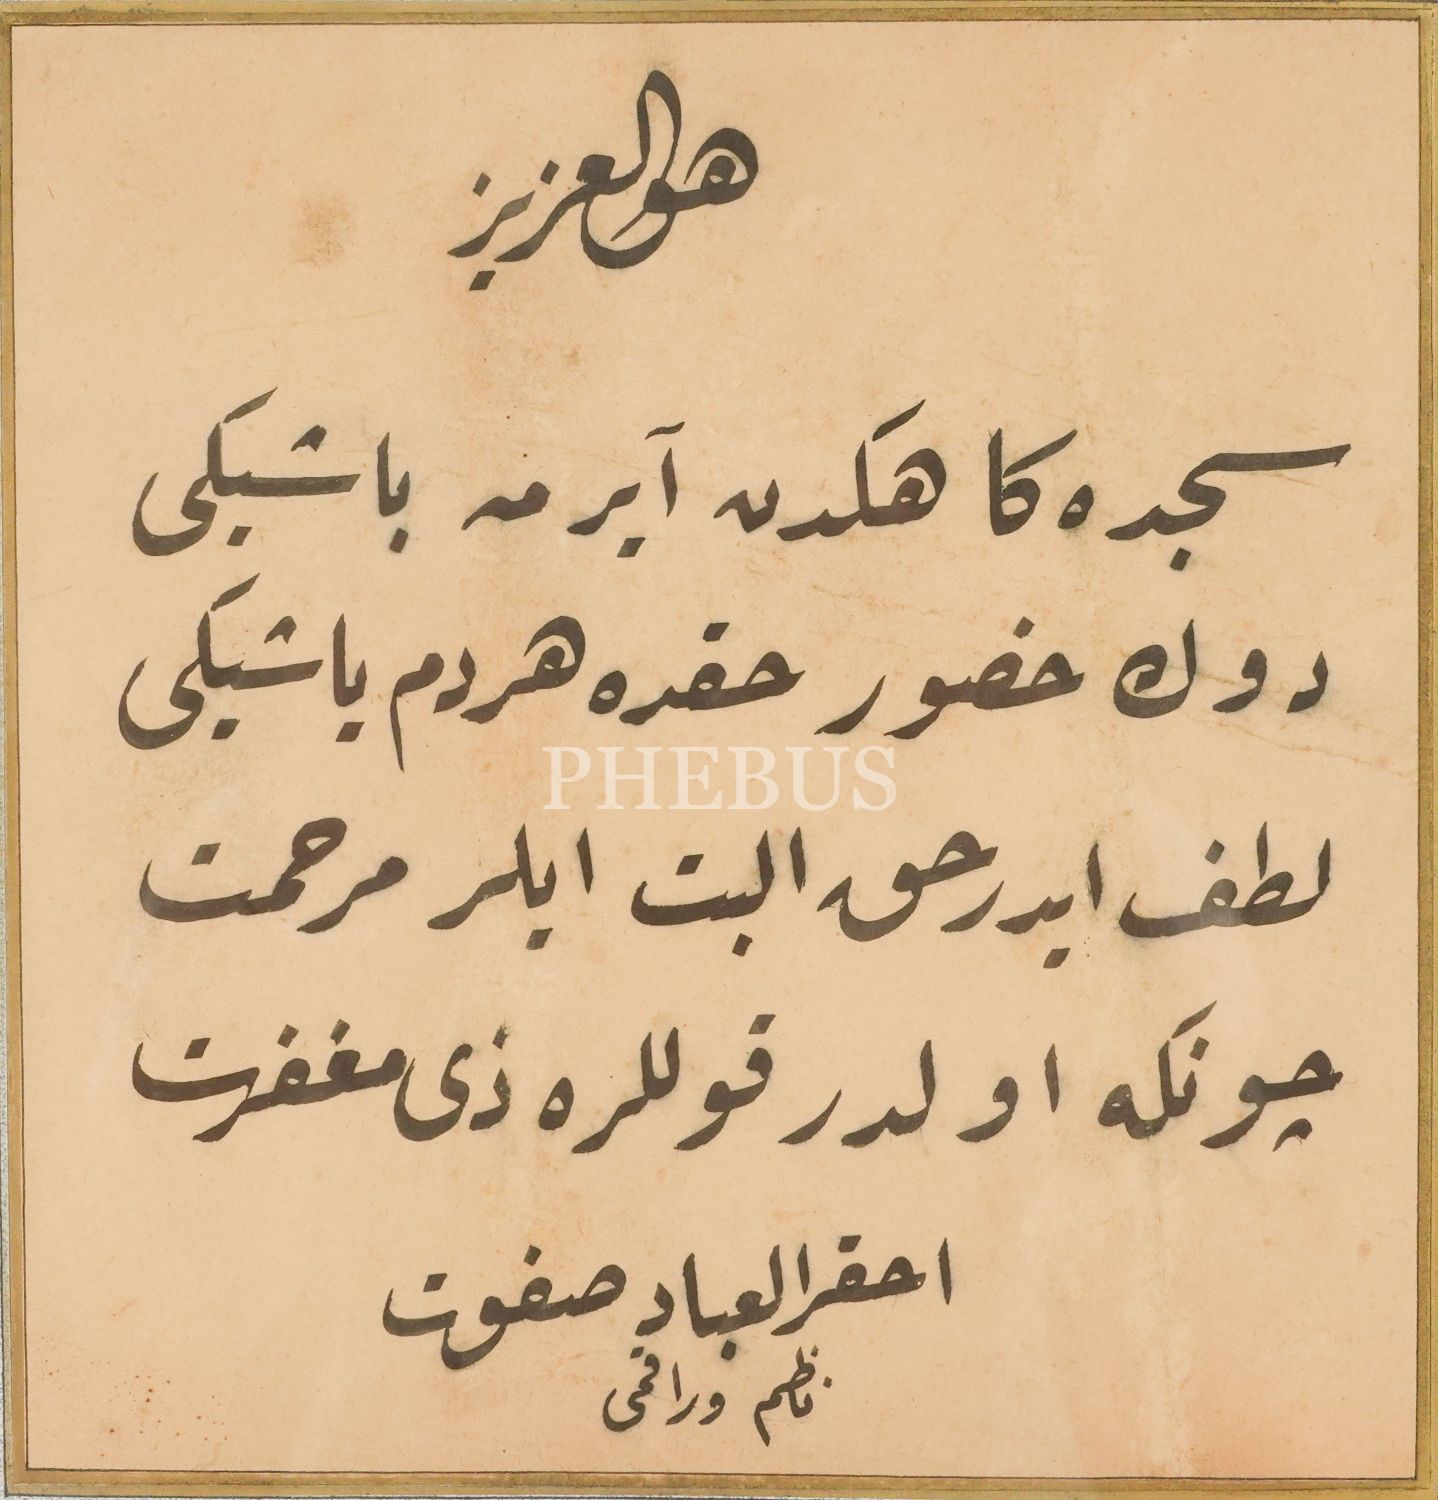 هو العزيز
سجده كاهكدن آيرمه باشيكى
دوك حضور حقده هردم ياشيكى
PHEBUS
لطف ايدر حق البت ايلر مرحمت
چونكه اولدر قوللره ذى مغفرت
احقر العباد صفوت
ناظم وراقمى